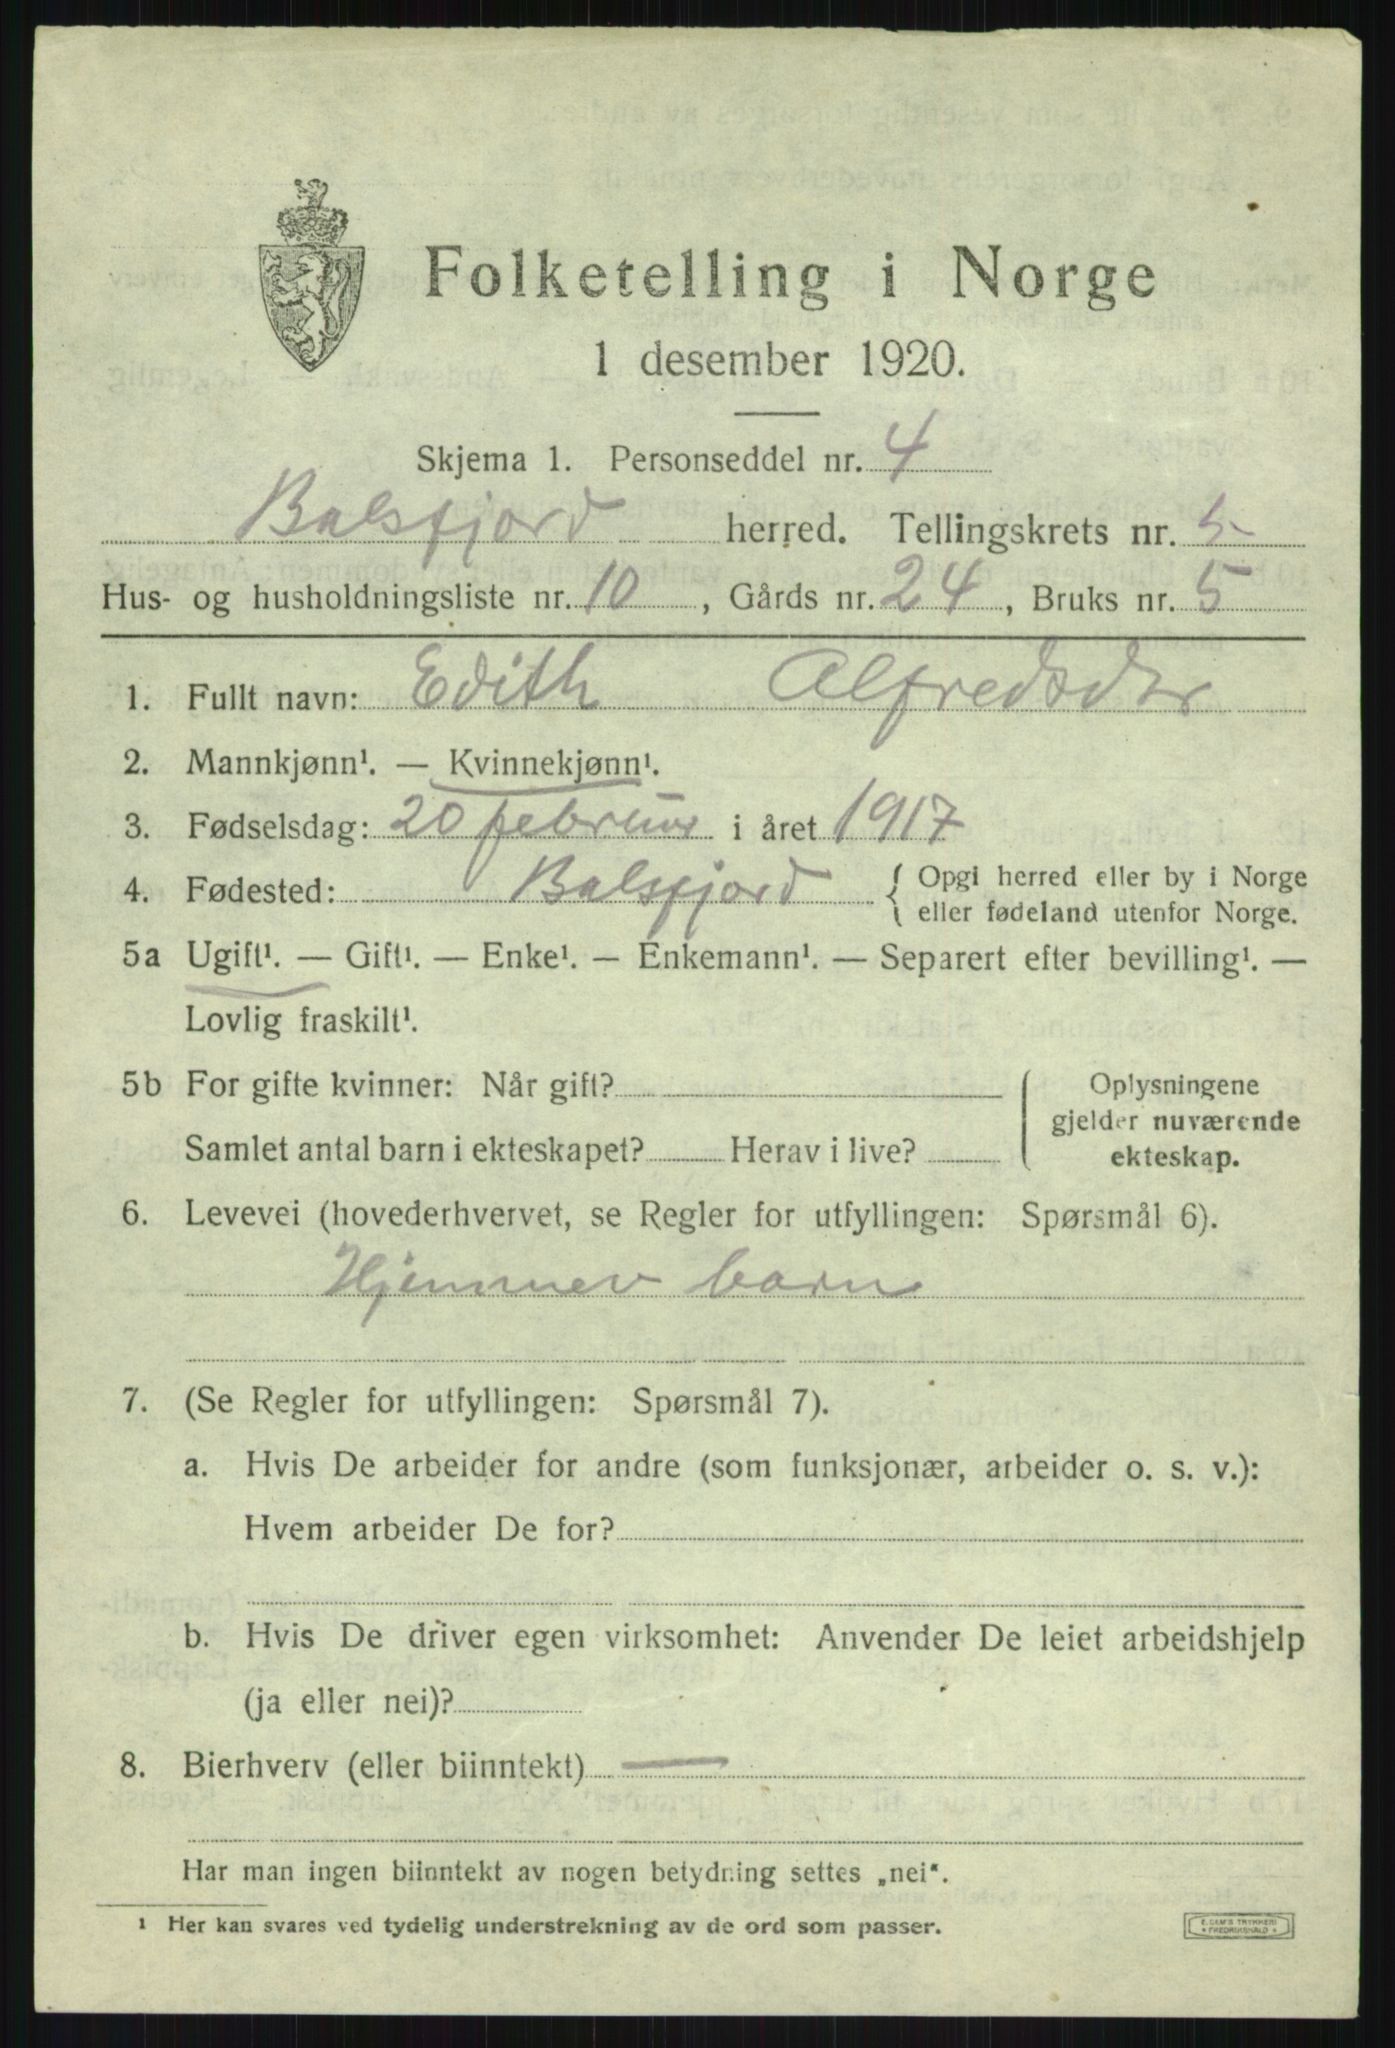 Folketelling i Norge
1 desember 1920.
Skjema 1. Personseddel nr. 4
Balsfjord herred. Tellingskrets nr. 5
Hus- og husholdningsliste nr. 10, Gårds nr. 24, Bruks nr. 5
1. Fullt navn: Edith Alfredsdtr
2. Mannkjønn¹. — Kvinnekjønn¹.
3. Fødselsdag: 20 februar i året 1917
4. Fødested: Balsfjord { Opgi herred eller by i Norge
eller fødeland utenfor Norge.
5a Ugift¹. — Gift¹. — Enke¹. — Enkemann¹. — Separert efter bevilling¹. —
Lovlig fraskilt¹.
5b For gifte kvinner: Når gift?
Samlet antal barn i ekteskapet? Herav i live?
Oplysningene
gjelder nuværende
ekteskap.
6. Levevei (hovederhvervet, se Regler for utfyllingen: Spørsmål 6).
Hjemmev barn
7. (Se Regler for utfyllingen: Spørsmål 7).
a. Hvis De arbeider for andre (som funksjonær, arbeider o. s. v.):
Hvem arbeider De for?
b. Hvis De driver egen virksomhet: Anvender De leiet arbeidshjelp
(ja eller nei)?
8. Bierhverv (eller biinntekt) —
Har man ingen biinntekt av nogen betydning settes „nei“.
¹ Her kan svares ved tydelig understrekning av de ord som passer.
E. DEM'S TRYKKERI
* FREDRIKSHALD *